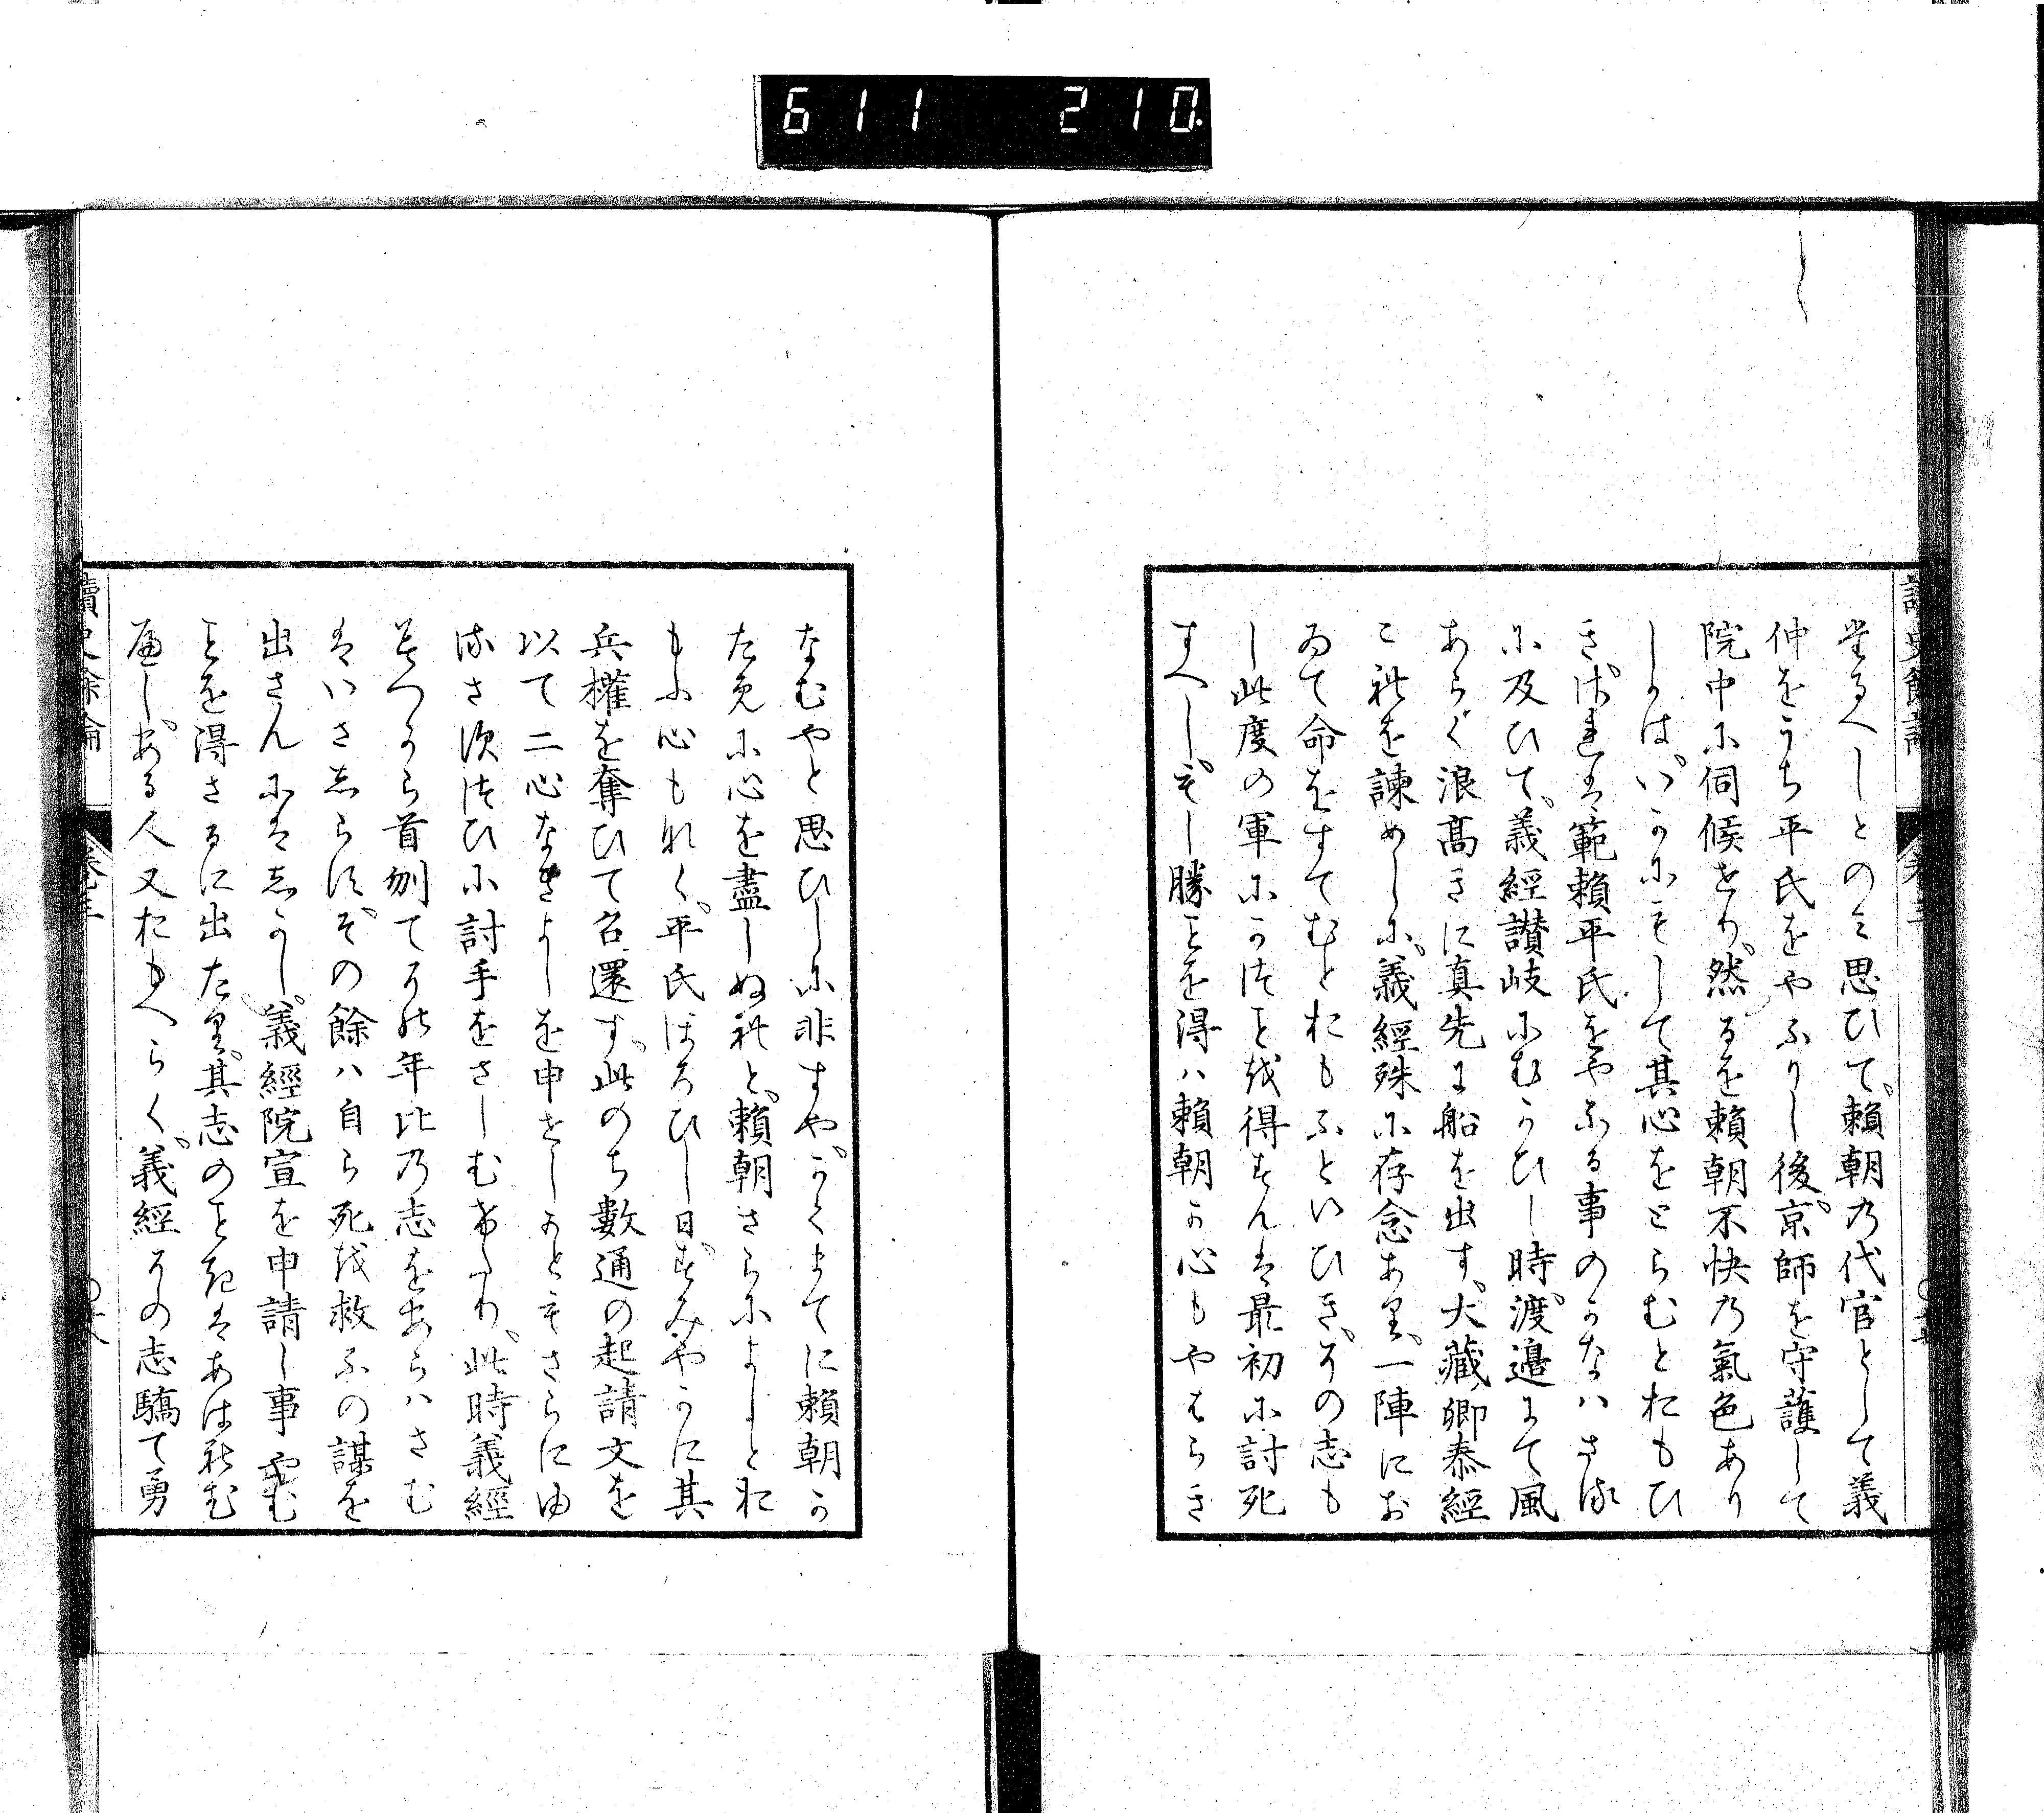 611 210
堂るへしとのミ思ひて。頼朝乃代官として義
仲をうち平氏をやふりし後。京師を守護して
院中尓伺候せり。然るを頼朝不快乃氣色あり
しうは。いうにもして其心をとらむとおもひ
き。されは範頼平氏をやふる事のうなハさる
尓及ひて。義經讃岐尓むうひし時。渡邉にて風
あらく浪髙きに真先に船を出す。大藏卿泰經
これを諫めし尓。義經殊尓存念あり。一陣にお
ゐて命をすてむとおもふといひき。その志も
し此度の軍尓うつことを得すんは最初尓討死
すへし。もし勝ことを得ハ頼朝う心もやはらき
なむやと思ひし尓非すや。うくまてに頼朝う
ため尓心を盡しぬれと。頼朝さら尓よしとお
もふ心もなく。平氏ほろひし日。すみやうに其
兵權を奪ひて召還す。此のち數通の起請文を
以て二心なきよしを申せしうともさらにゆ
るさす。つひ尓討手をさしむけたり。此時義經
みつうら首刎てその年比乃志をあらハさむ
はいさしらす。その餘ハ自ら死を救ふの謀を
出さん尓はしうし。義經院宣を申請し事やむ
ことを得さるに出たり。其志のこときはあはれむ
へし。ある人又おもへらく。義經その志驕て勇
讀史餘論 卷三